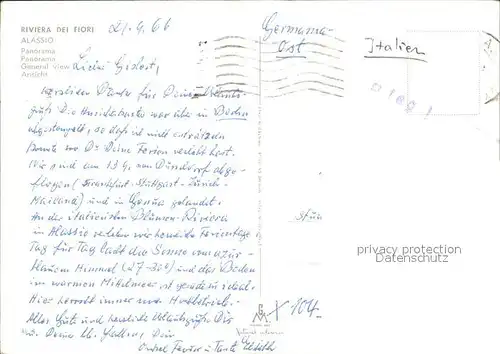 RIVIERA DEI FIORI
ALASSIO
Panorama
Panorama
General view
Ansicht
21.9.66
Germania-
Ost
Italien
herzlichen Dank für Deine
Die Ansichtskarte war aber in Baden
abgestempelt, so daß ich nicht
konnte wo Du Deine Ferien verlebt hast.
Wir sind am 13.9. von Düsseldorf abge-
flogen (Frankfurt-Stuttgart-Zürich-
Mailand) und in Genua gelandet.
An der italienischen Blumen-Riviera
in Alassio verleben wir herrliche Ferientage
Tag für Tag lacht die Sonne vom azur-
blauen Himmel (27-30°) und das Baden
im warmen Mittelmeer ist geradezu ideal.
Hier herrscht immer noch Hochbetrieb.
Alles Gute und herzliche Urlaubsgrüße Dir
u. Deine lb. Eltern, Dein
Onkel und Tante
privacy protection
Datenschutz